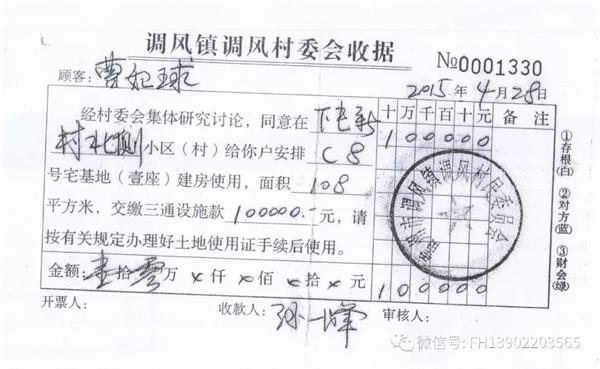 调风镇调风村委会收据
№0001330
顾客：曹妃球
2015年4月28日
经村委会集体研究讨论，同意在
村北侧小区（村）给你户安排 C8
号宅基地（壹座）建房使用，面积 108
平方米，交缴三通设施款 100000.-元，请
按有关规定办理好土地使用证手续后使用。
金额：壹拾零万×仟×佰×拾×元
十万千百十元 备注
100000
100000
①存根（白）
②对方（蓝）
③财会（绿）
调风镇调风村民委员会
开票人：
收款人：孙一峰
审核人：
微信号: FH13902203565